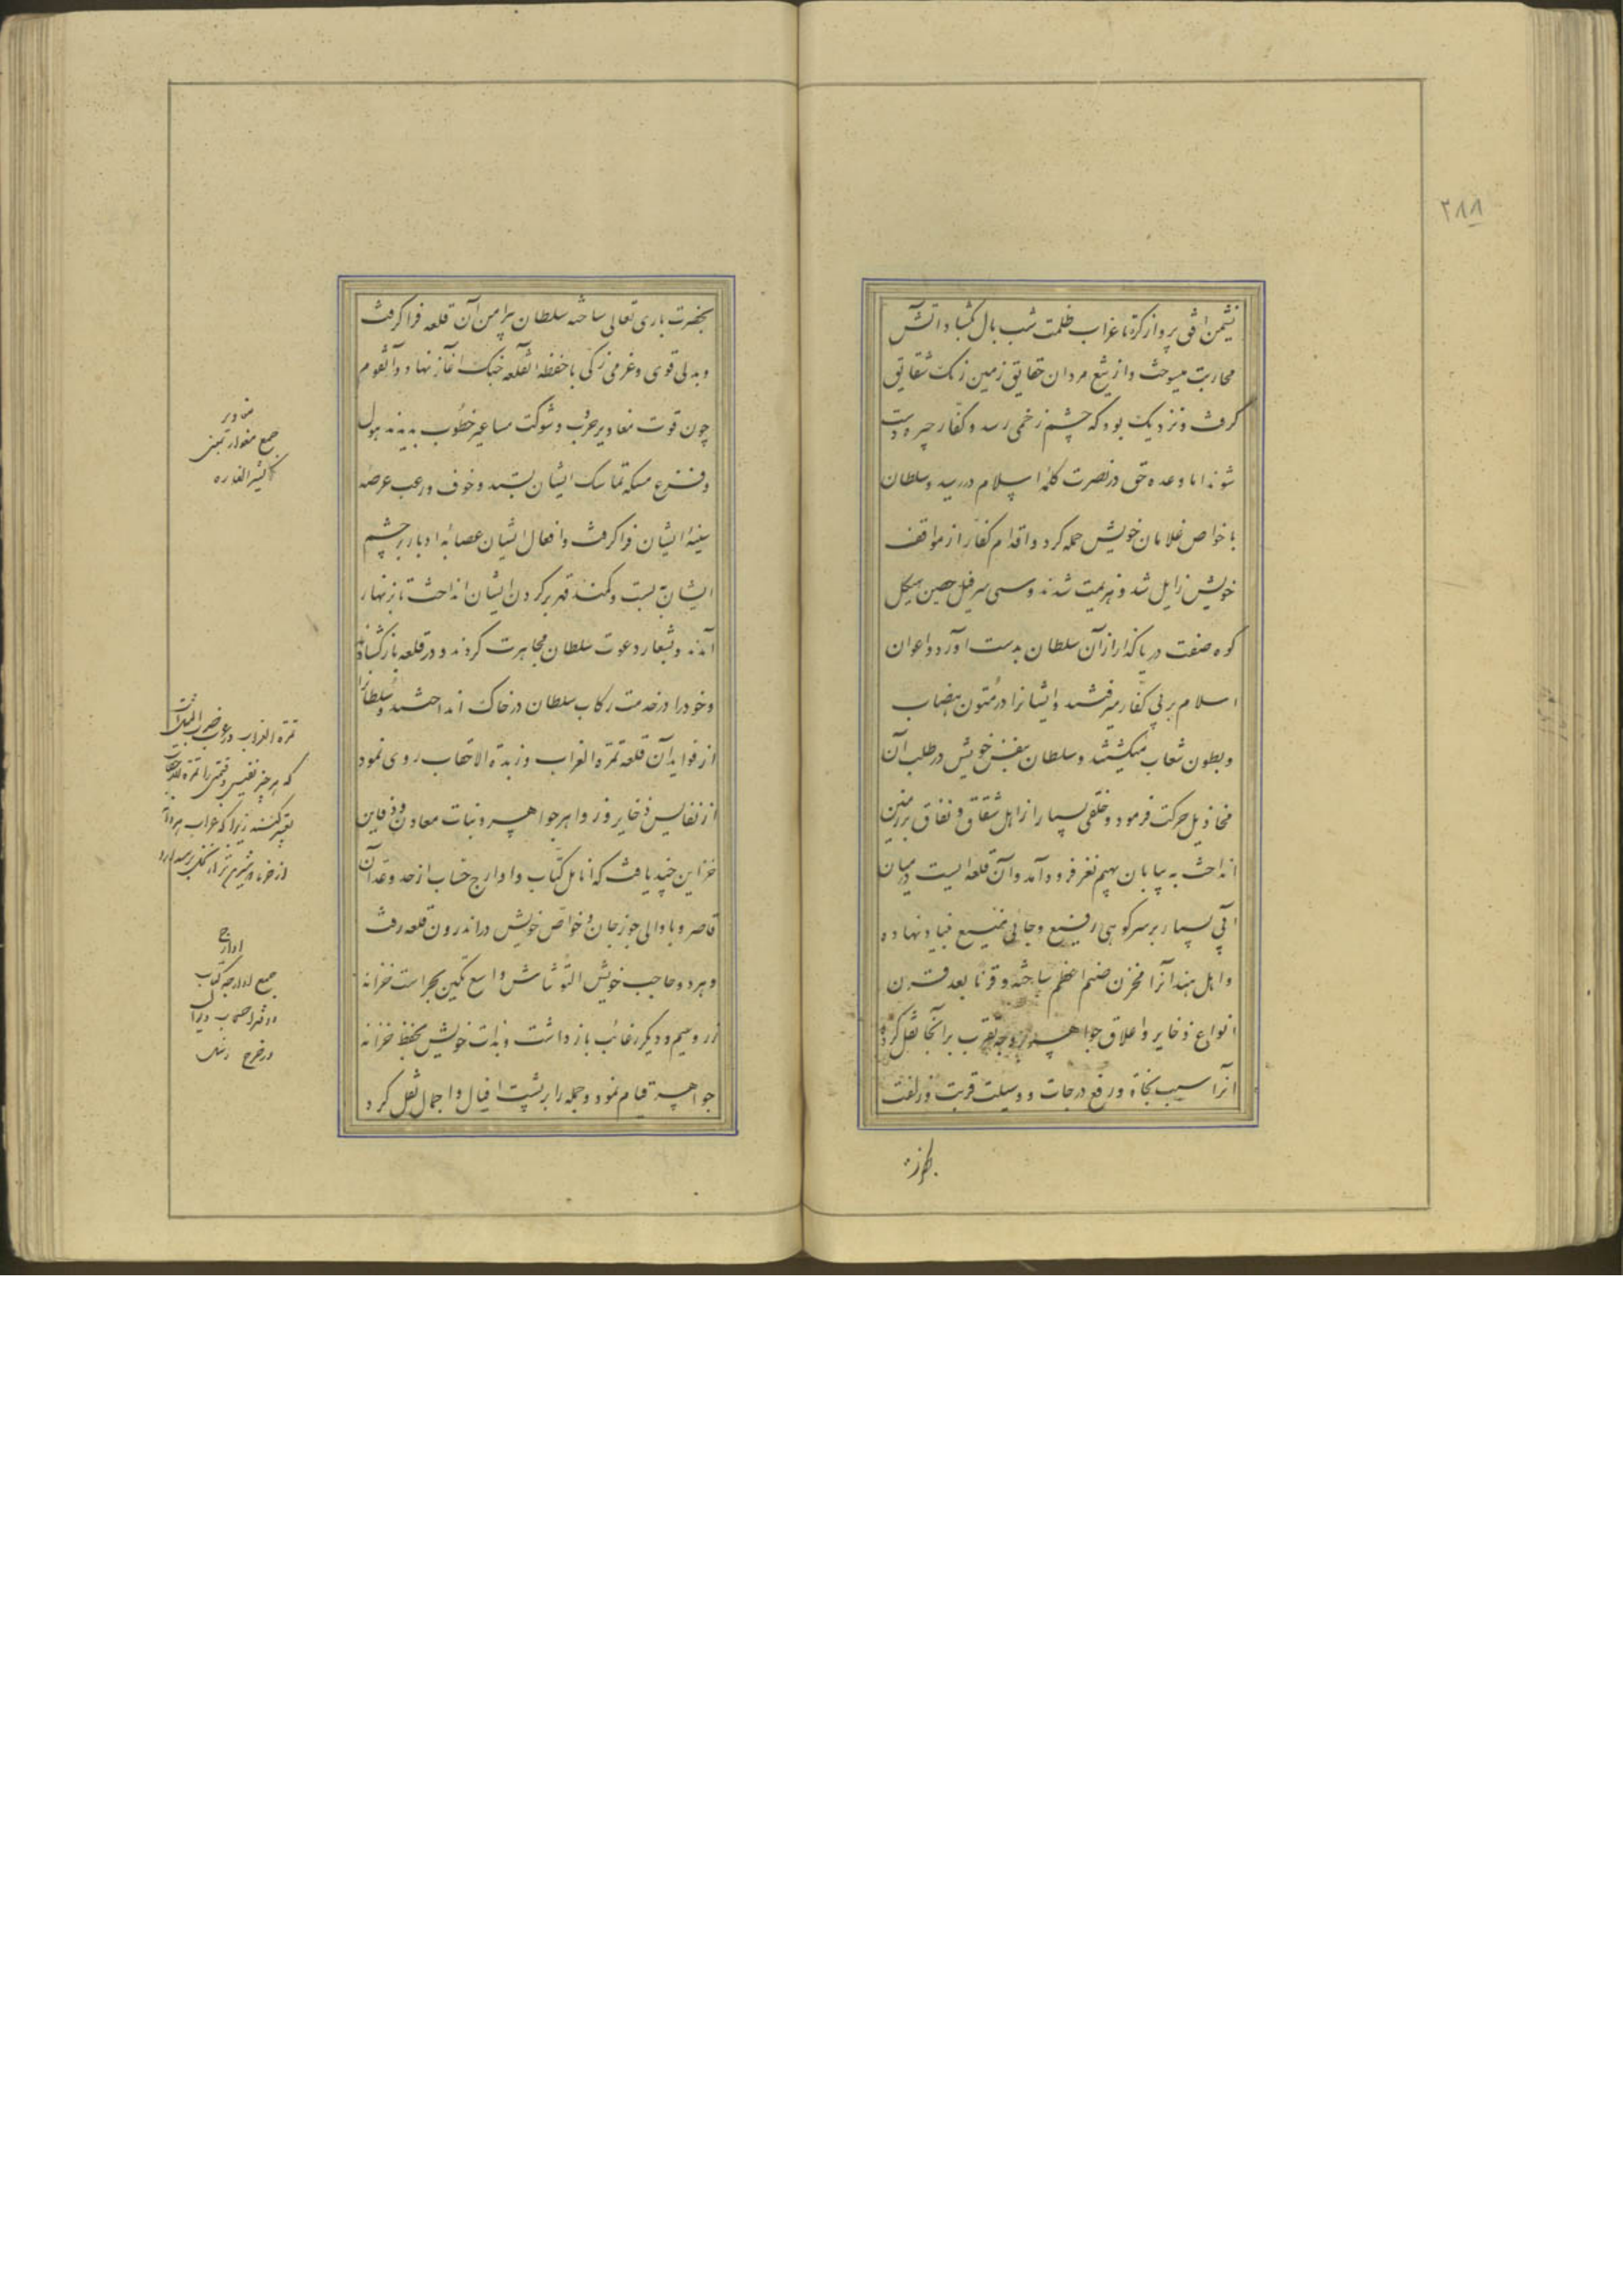 ۲۸۸
نشیمن افق پرواز کرد تا غراب ظلمت شب بال گشاد و آتش
محاربت میسوخت و از تیغ مردان حقایق زمین رنگ شقایق
گرفت و نزدیک بود که چشم زخمی رسد و کفار چیره دست
شوند اما وعده حق در نصرت کلمۀ اسلام در رسید و سلطان
با خواص غلامان خویش حمله کرد و اقدام کفار از مواقف
خویش زایل شد و هزیمت شدند و سی سر فیل حصین هیکل
کوه صفت دریا گذار از آن سلطان بدست آورد و اعوان
اسلام بر پی کفار میرفتند و ایشانرا در متون هضاب
و بطون شعاب میکشتند و سلطان بنفس خویش در طلب آن
مخاذیل حرکت فرمود و خلقی بسیار از اهل شقاق و نفاق بر زمین
انداخت به پایان بهیم نغر فرود آمد و آن قلعه ایست در میان
آبی بسیار بر سر کوهی رفیع و جائی منیع بنیاد نهاده
و اهل هند آنرا مخزن صنم اعظم ساخته و قرنا بعد قرن
انواع ذخایر و اعلاق جواهر بر وجه تقرب بر آنجا نقل کرده
آنرا سبب نجاة و رفع درجات و وسیلت قربت و زلفت
بحضرت باری تعالی ساخته سلطان پیرامن آن قلعه فرا گرفت
و بدلی قوی و عزمی زکی با حفظه القلعه جنگ آغاز نهاد و آنقوم
چون قوت مغاویر حرب و شوکت مساعیر خطوب بدیدند هول
و فزع مسکه تماسک ایشان بستد و خوف و رعب عرصه
سینه ایشان فرا گرفت و افعال ایشان عصابۀ ادبار بر چشم
ایشان بست و کمند قهر بر گردن ایشان انداخت تا بزنهار
آمدند و بشعار دعوت سلطان مجاهرت کردند و در قلعه باز گشادند
و خود را در خدمت رکاب سلطان در خاک انداختند و سلطانرا
از فواید آن قلعه تمرة الغراب و زبدة الاحقاب روی نمود
از نفایس ذخایر و زواهر جواهر و نبات معادن و دفاین
خزاین چندان یافت که انامل کتاب و اوارج حساب از حد و عد آن
قاصر و با والی جوزجان و خواص خویش در اندرون قلعه رفت
و هر دو حاجب خویش التونتاش و اسغ تکین بحراست خزانه
زر و سیم و دیگر رغائب باز داشت و بذات خویش بحفظ خزانه
جواهر قیام نمود و جمله را بر پشت افیال و اجمال نقل کرد
مغاویر
جمع مغوار بمعنی
کثیر الغاره
تمرة الغراب در عرب ضرب المثل است
که هر چیز نفیس و قیمتی را تمرة الغراب
تعبیر کنند زیرا که غراب هر دانه
اوارج
جمع اوارجه کتاب
و دفتر اصحاب دیوان